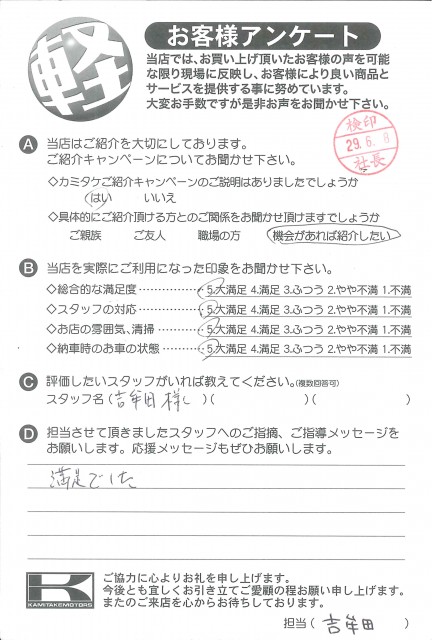 軽
お客様アンケート
当店では、お買い上げ頂いたお客様の声を可能
な限り現場に反映し、お客様により良い商品と
サービスを提供する事に努めています。
大変お手数ですが是非お声をお聞かせ下さい。
検印
29.6.8
社長
A 当店はご紹介を大切にしております。
ご紹介キャンペーンについてお聞かせ下さい。
◇カミタケご紹介キャンペーンのご説明はありましたでしょうか
はい いいえ
◇具体的にご紹介頂ける方とのご関係をお聞かせ頂けますでしょうか
ご親族 ご友人 職場の方 機会があれば紹介したい
B 当店を実際にご利用になった印象をお聞かせ下さい。
◇総合的な満足度 5.大満足 4.満足 3.ふつう 2.やや不満 1.不満
◇スタッフの対応 5.大満足 4.満足 3.ふつう 2.やや不満 1.不満
◇お店の雰囲気、清掃 5.大満足 4.満足 3.ふつう 2.やや不満 1.不満
◇納車時のお車の状態 5.大満足 4.満足 3.ふつう 2.やや不満 1.不満
C 評価したいスタッフがいれば教えてください。(複数回答可)
スタッフ名(吉牟田様)( )( )
D 担当させて頂きましたスタッフへのご指摘、ご指導メッセージを
お願いします。応援メッセージもぜひお願いします。
満足でした
KAMITAKE MOTORS
ご協力に心よりお礼を申し上げます。
今後とも宜しくお引き立てご愛顧の程お願い申し上げます。
またのご来店を心からお待ちしております。
担当(吉牟田)